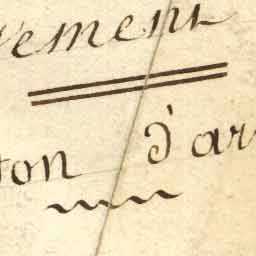 rement
ton d'ar